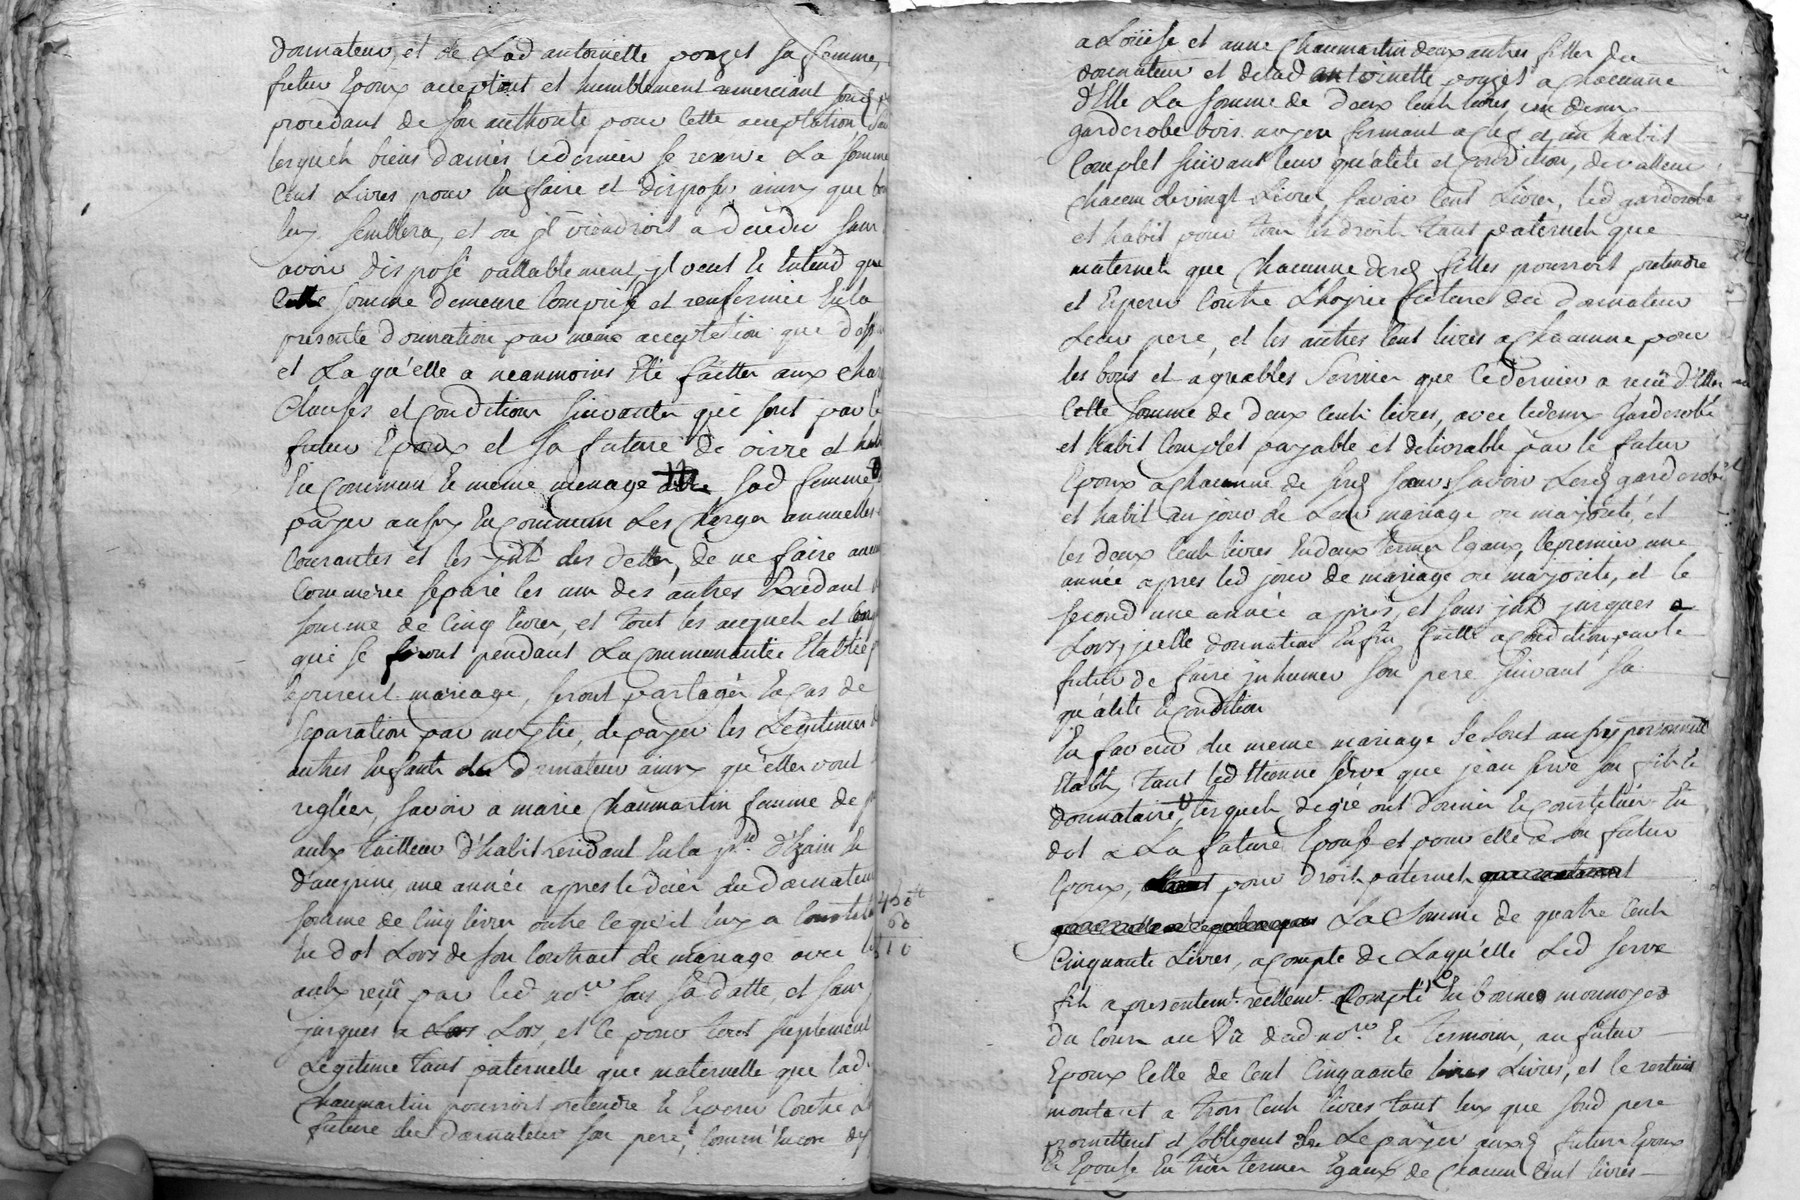 donnateur, et de Lad antoinette pouzet sa femme,
futur Epoux acceptant et humblement remerciant sond
procedant de son authorité pour cette acceptation,
lesquels biens donnés ledernier se reserve La somme
Cent Livres pour En faire et disposer ainsy que
luy semblera, et ou jl viendroit a deceder sans
avoir disposé vallablement, jl veut Et Entend que
Cette somme demeure Comprise et renfermée En la
presente donnation par meme acceptation que d
et La qu'elle a neanmoins Eté faitte aux
Clauses et Conditions suivantes qui sont par le
futur Epoux et sa future de vivre et
En Commun Et meme menage sad femme
payer aussy En Commun Les charges annuelles
Courantes et les jnts des dettes, de ne faire aucun
Commerce separé les uns des autres Excedant
somme de Cinq livres, et tout les acquets et
qui se feront pendant La Communautée Etablie
le present mariage, seront partagés En Cas de
separation par moytié, de payer les Legitimes
autres Enfants du donnateur ainsy qu'elles vont
reglées, savoir a marie Chaumartin femme de
tailleur d'habit residant En la psse d'Izain Et
d'aupine, une année apres le deces du donnateur
somme de Cinq livres outre ce qu'il luy a Constitué
En dot Lors de son Contrait de mariage avec
reçu par led nore sous sa datte, et sans
jusques a Lors Lors, et ce pour tout suplement
Legitime tant paternelle que maternelle que lad
Chaumartin pourroit pretendre Et Esperer Contre
future du donnateur son pere, Comm'Encore de
450
60
510
a Loüise et anne Chaumartin deux autres filles du
donnateur et delad antoinette pouzet a Chacunne
d'Elle La somme de deux Cents livres, un deux
garderobe bois noyer fermant a clef et un habit
Complet suivant leur qu'alité et Condition, de valleur
Chacun de vingt Livres, savoir Cent Livres, led garderobe
et habit pour tous les droits tant paternels que
maternels que Chacunne desd filles pourroit pretendre
et Esperer Contre L'hoyrie future du donnateur
Leur pere, et les autres Cent livres a Chacunne pour
les bons et agreables services que ledernier a recu d'Elles
Cette somme de deux Cents livres, avec ledeux Garderobe
et habit Complet payable et delivrable par le futur
Epoux a Chacunne de sesd soeurs savoir Lesd garderobe
et habit au jour de Leur mariage ou majorité, et
les deux Cents livres En deux termes Egaux, le premier une
année apres led jour de mariage ou majorité, et le
second une année apres, et sans jnts jusques a
Lors, jcelle donnation Enfin faitte a Condition par le
futur de faire jnhumer son pere suivant sa
qu'alité Et Condition
En faveur du meme mariage se sont aussy personnellt
Etablis, tant led Etienne serve que jean serve son fils Et
donnataire, lesquels de gré ont donné Et Constitué En
dot a La future Epouse et pour elle a son futur
Epoux, pour droits paternels
La somme de quatre Cents
Cinquante Livres, a Compte de Laqu'elle Led serve
fils a presentemt. reellemt. Compté En bonnes monnoyes
du Cours au Vû dud nore Et temoins, au futur
Epoux Celle de Cent Cinquante livres Livres, et le restant
montant a trois Cents livres tant luy que sond pere
promettent et s'obligent de Le payer auxd futurs Epoux
Et Epouse En trois termes Egaux de Chacun Cent livres